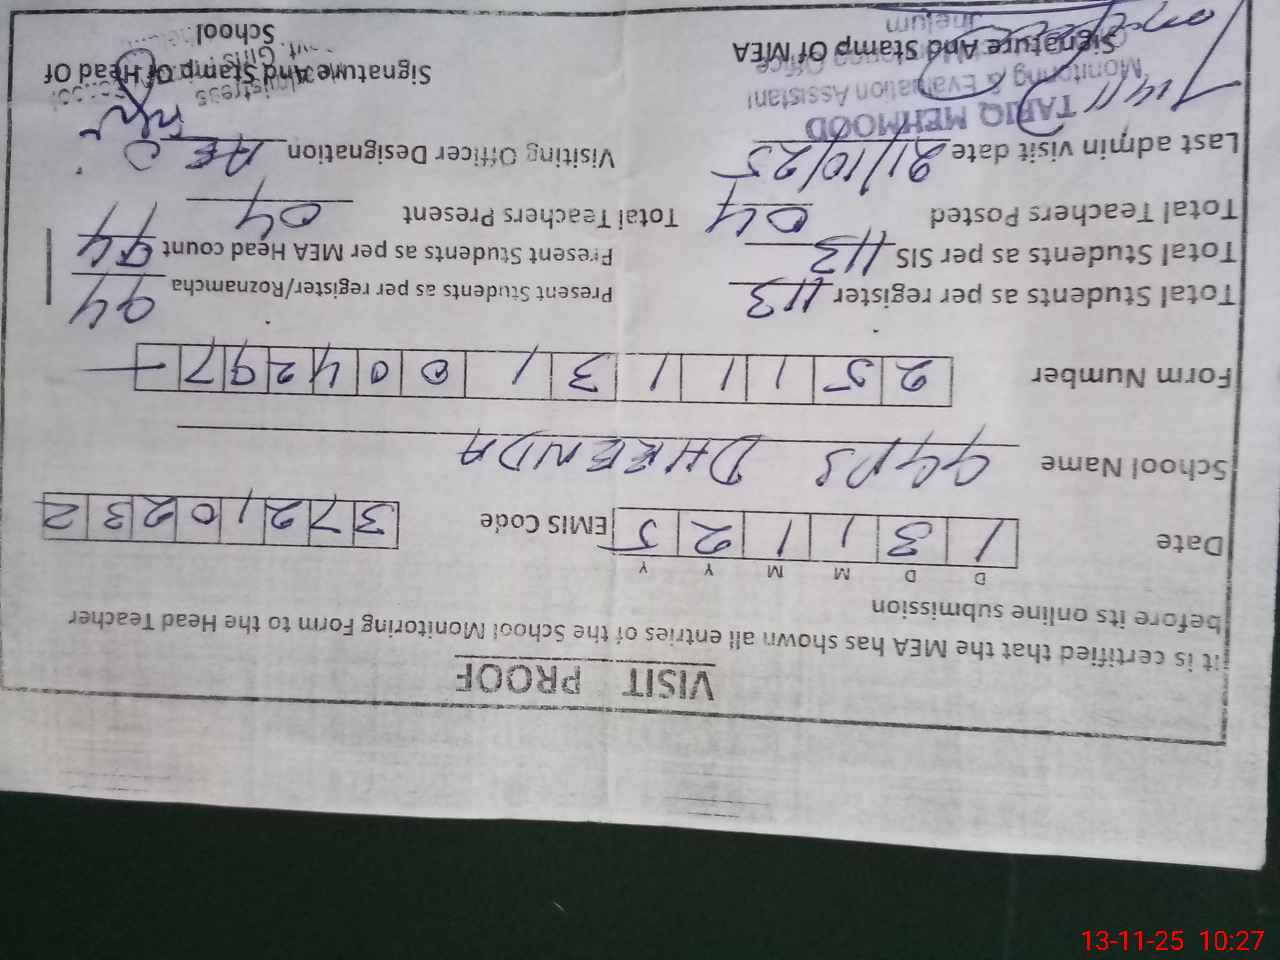 VISIT PROOF
it is certified that the MEA has shown all entries of the School Monitoring Form to the Head Teacher
before its online submission
D D M M Y Y
Date 1 3 1 1 2 5 EMIS Code 3 7 2 1 0 2 3 2
School Name GGPS DHEENDA
Form Number 2 5 1 1 1 3 1 0 0 4 2 9 7
Total Students as per register 113 Present Students as per register/Roznamcha 94
Total Students as per SIS 113 Present Students as per MEA Head count 94
Total Teachers Posted 04 Total Teachers Present 04
Last admin visit date 21/10/25 Visiting Officer Designation AEO
TARIQ MEHMOOD
Monitoring & Evaluation Assistant
Signature And Stamp Of MEA Signature And Stamp Of Head Of
School
13-11-25 10:27